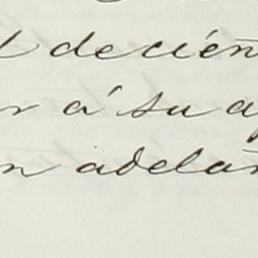 l decien
r á su a
n adelan